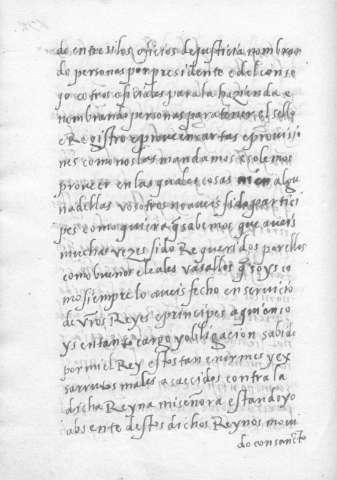 do entre si los oficios de justicia nombran
do personas por presidente e del conse
jo e otros oficiales para la hazienda e
nombrando personas para tener el sello
e Registro e proveen cartas e provisio
nes como nos las mandamos e solemos
proveer en las quales cosas ni en algu
na dellas vosotros no aveis sido partici
pes como quiera q sabemos que aveis
muchas vezes sido Requeridos por ellos
como buenos e leales vasallos q soys e co
mo siempre lo aveis fecho en servicio
de vros Reyes e principes a quien so
ys en tanto cargo y obligacion sabido
por mi el Rey estos tan enormes y ex
sarrutos males acaecidos contra la
dicha Reyna mi señora estando yo
absente destos dichos Reynos movi
do con sancto